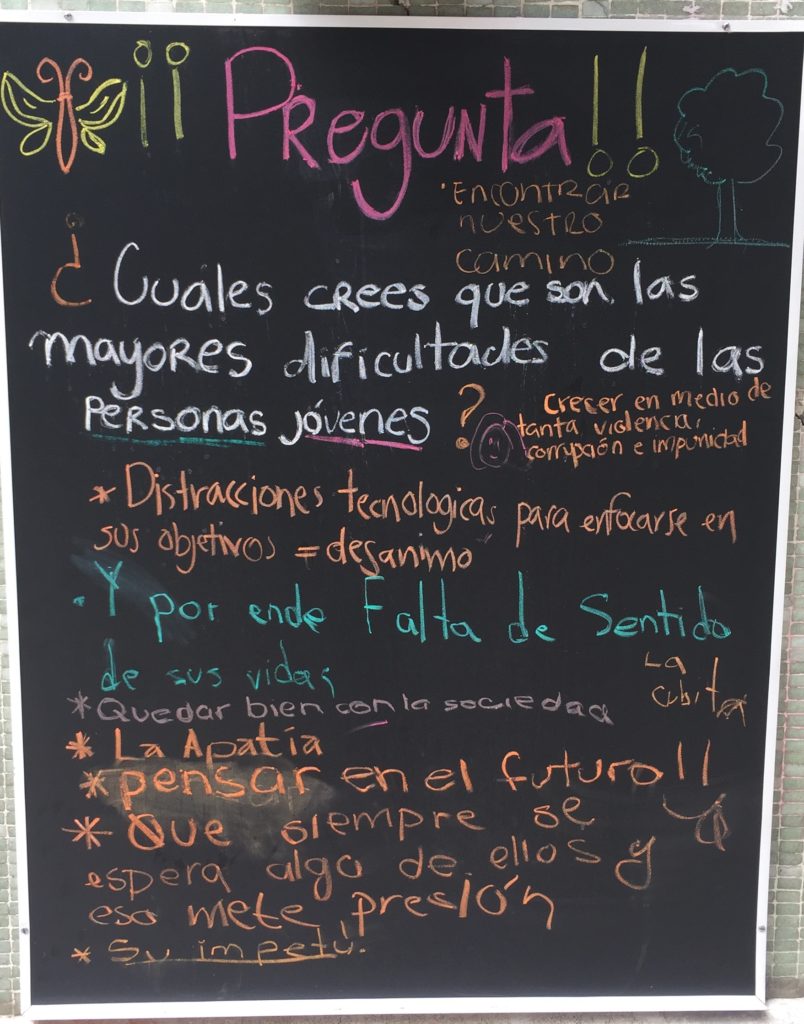 ¡¡ Pregunta!!
· Encontrar
nuestro
camino
¿Cuales crees que son las
mayores dificultades de las
personas jóvenes?
Crecer en medio de
tanta violencia,
corrupción e impunidad
* Distracciones tecnologicas para enfocarse en
sus objetivos = desanimo
· Y por ende Falta de Sentido
de sus vidas
La
cubita
* Quedar bien con la sociedad
* La Apatía
* pensar en el futuro!!
* Que siempre se
espera algo de ellos y
eso mete presión
* Su impetú!